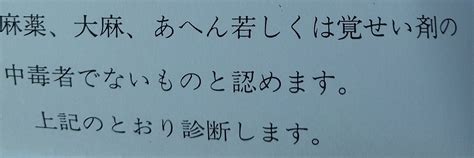 麻薬、大麻、あへん若しくは覚せい剤の
中毒者でないものと認めます。
上記のとおり診断します。